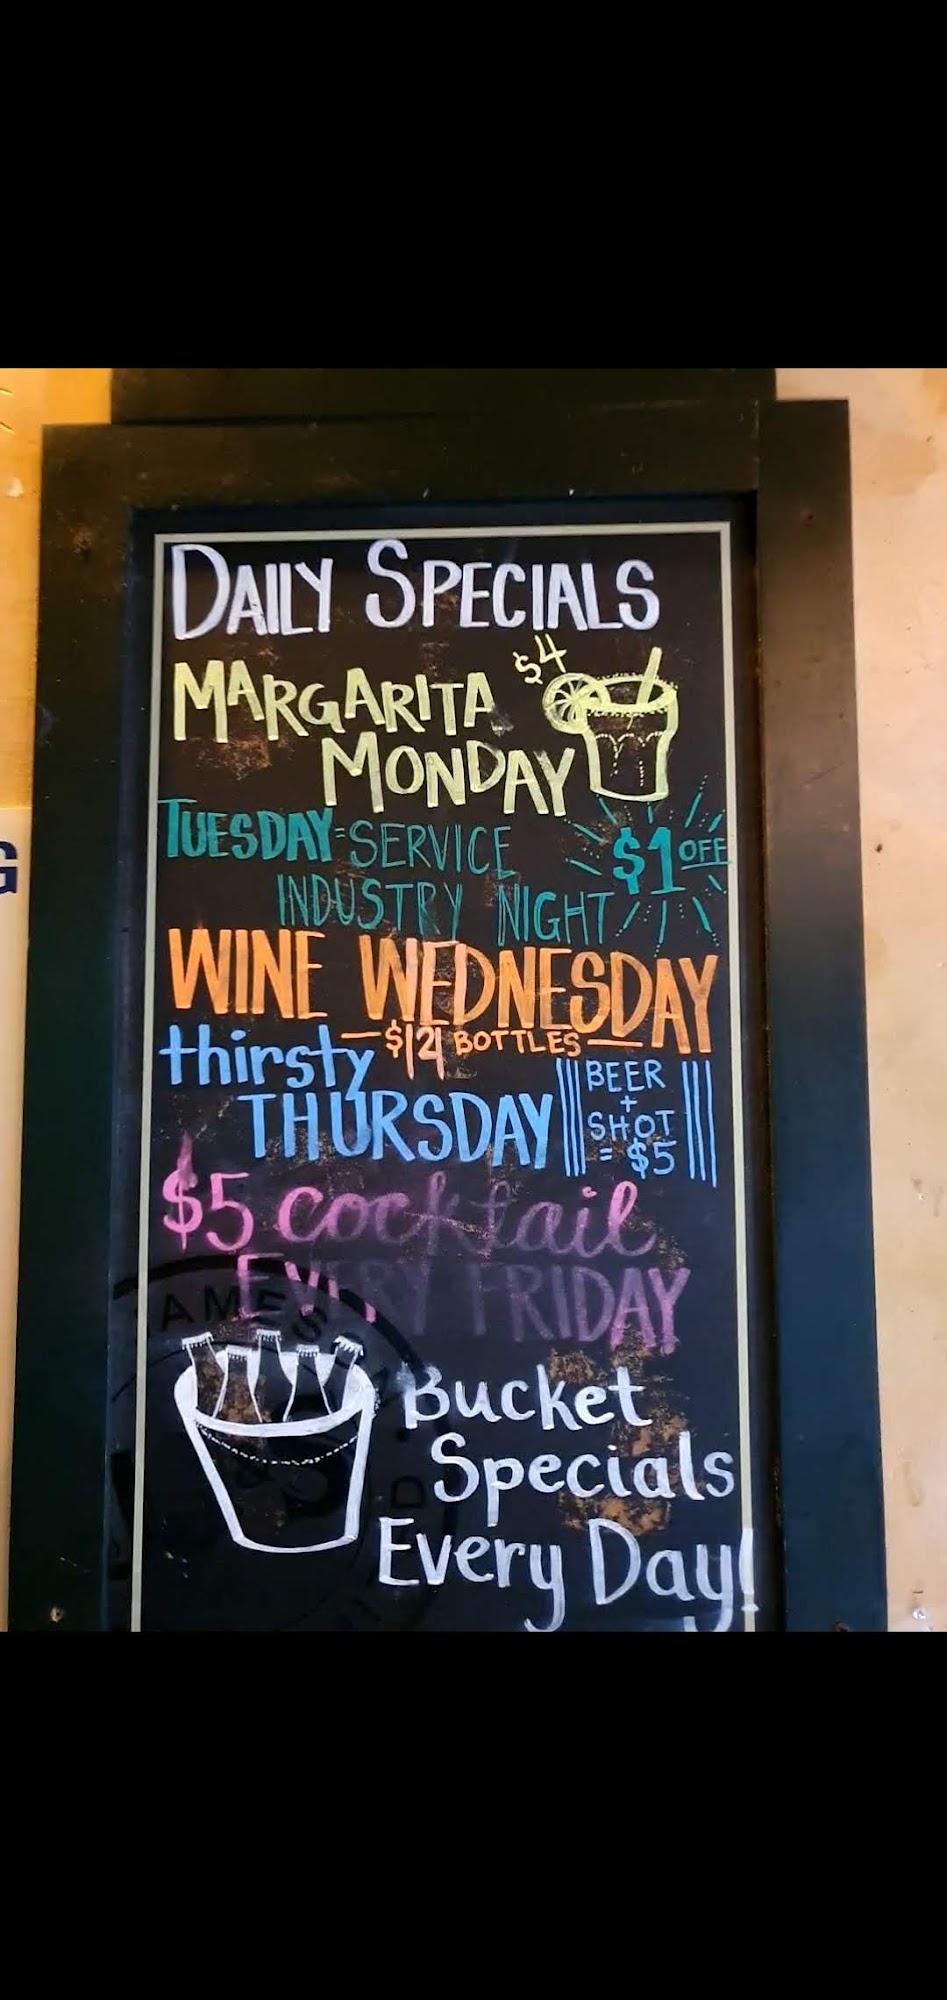 DAILY SPECIALS
MARGARITA $4
MONDAY
TUESDAY-SERVICE
INDUSTRY NIGHT
$1 OFF
WINE WEDNESDAY
-$12 BOTTLES-
thirsty
THURSDAY
BEER
+
SHOT
= $5
$5 cocktail
EVERY FRIDAY
Bucket
Specials
Every Day!
G